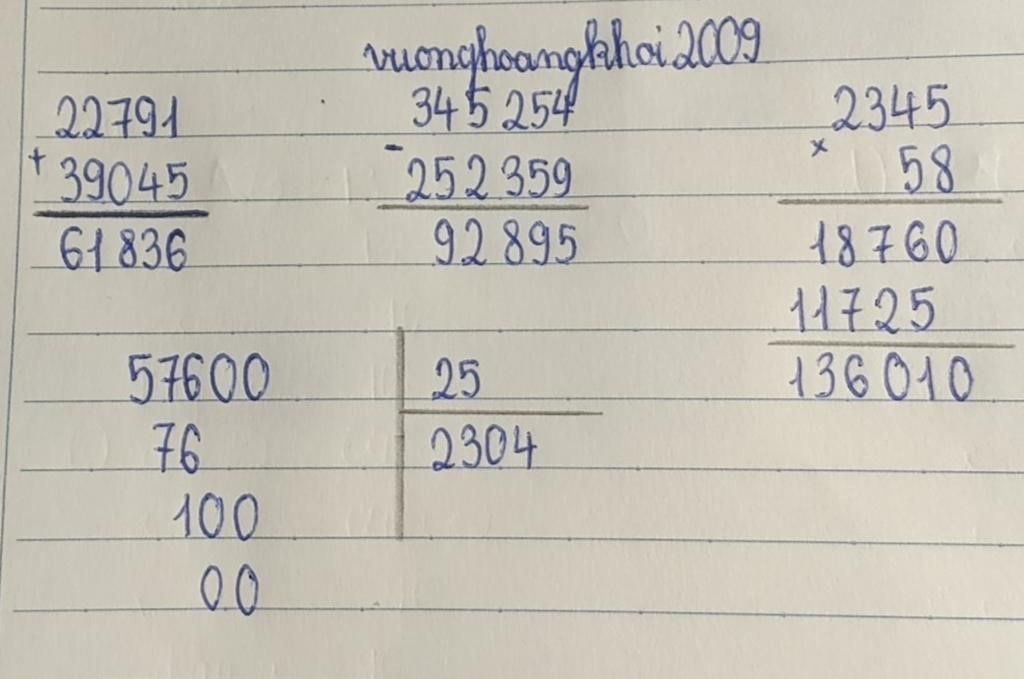 vuonghoangkhoi2009
22791
+
39045
61836
345 254
-
252 359
92 895
2345
x
58
18760
11725
136010
57600
25
76
2304
100
00